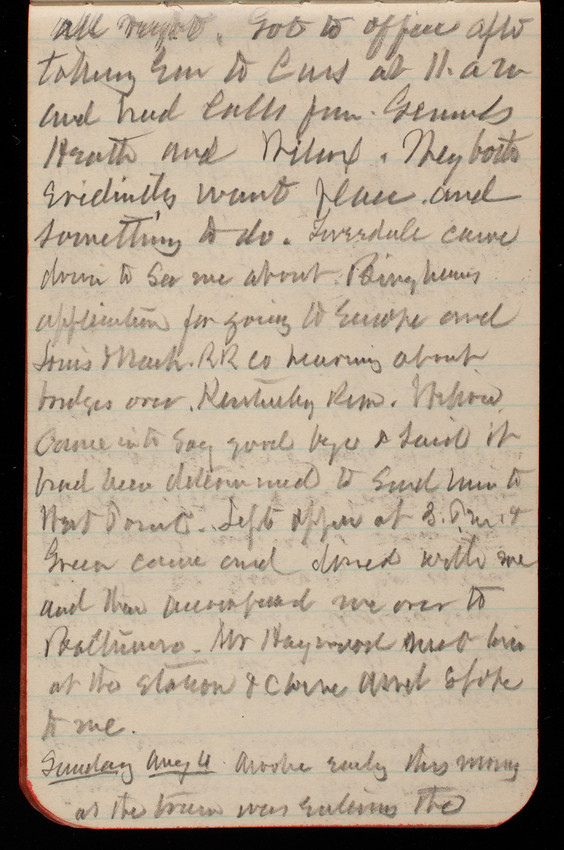 all right. Got to office after
taking Gen to Cars at 11. a m
and had calls from
Heath and Wilcox. They both
evidently want place and
something to do. Liverdale came
down to see me about Binghams
application for going to Europe and
RR co hearing about
bridges over Kentucky River. Wilson
came in to say good bye & said it
had been determined to send him to
West Point. Left office at 3. P.m. &
Green came and dined with me
and then accompanied me over to
Baltimore. Mr Haywood met him
at the station & came and spoke
to me.
Sunday Aug 4 Awoke early this morning
as the train was entering the